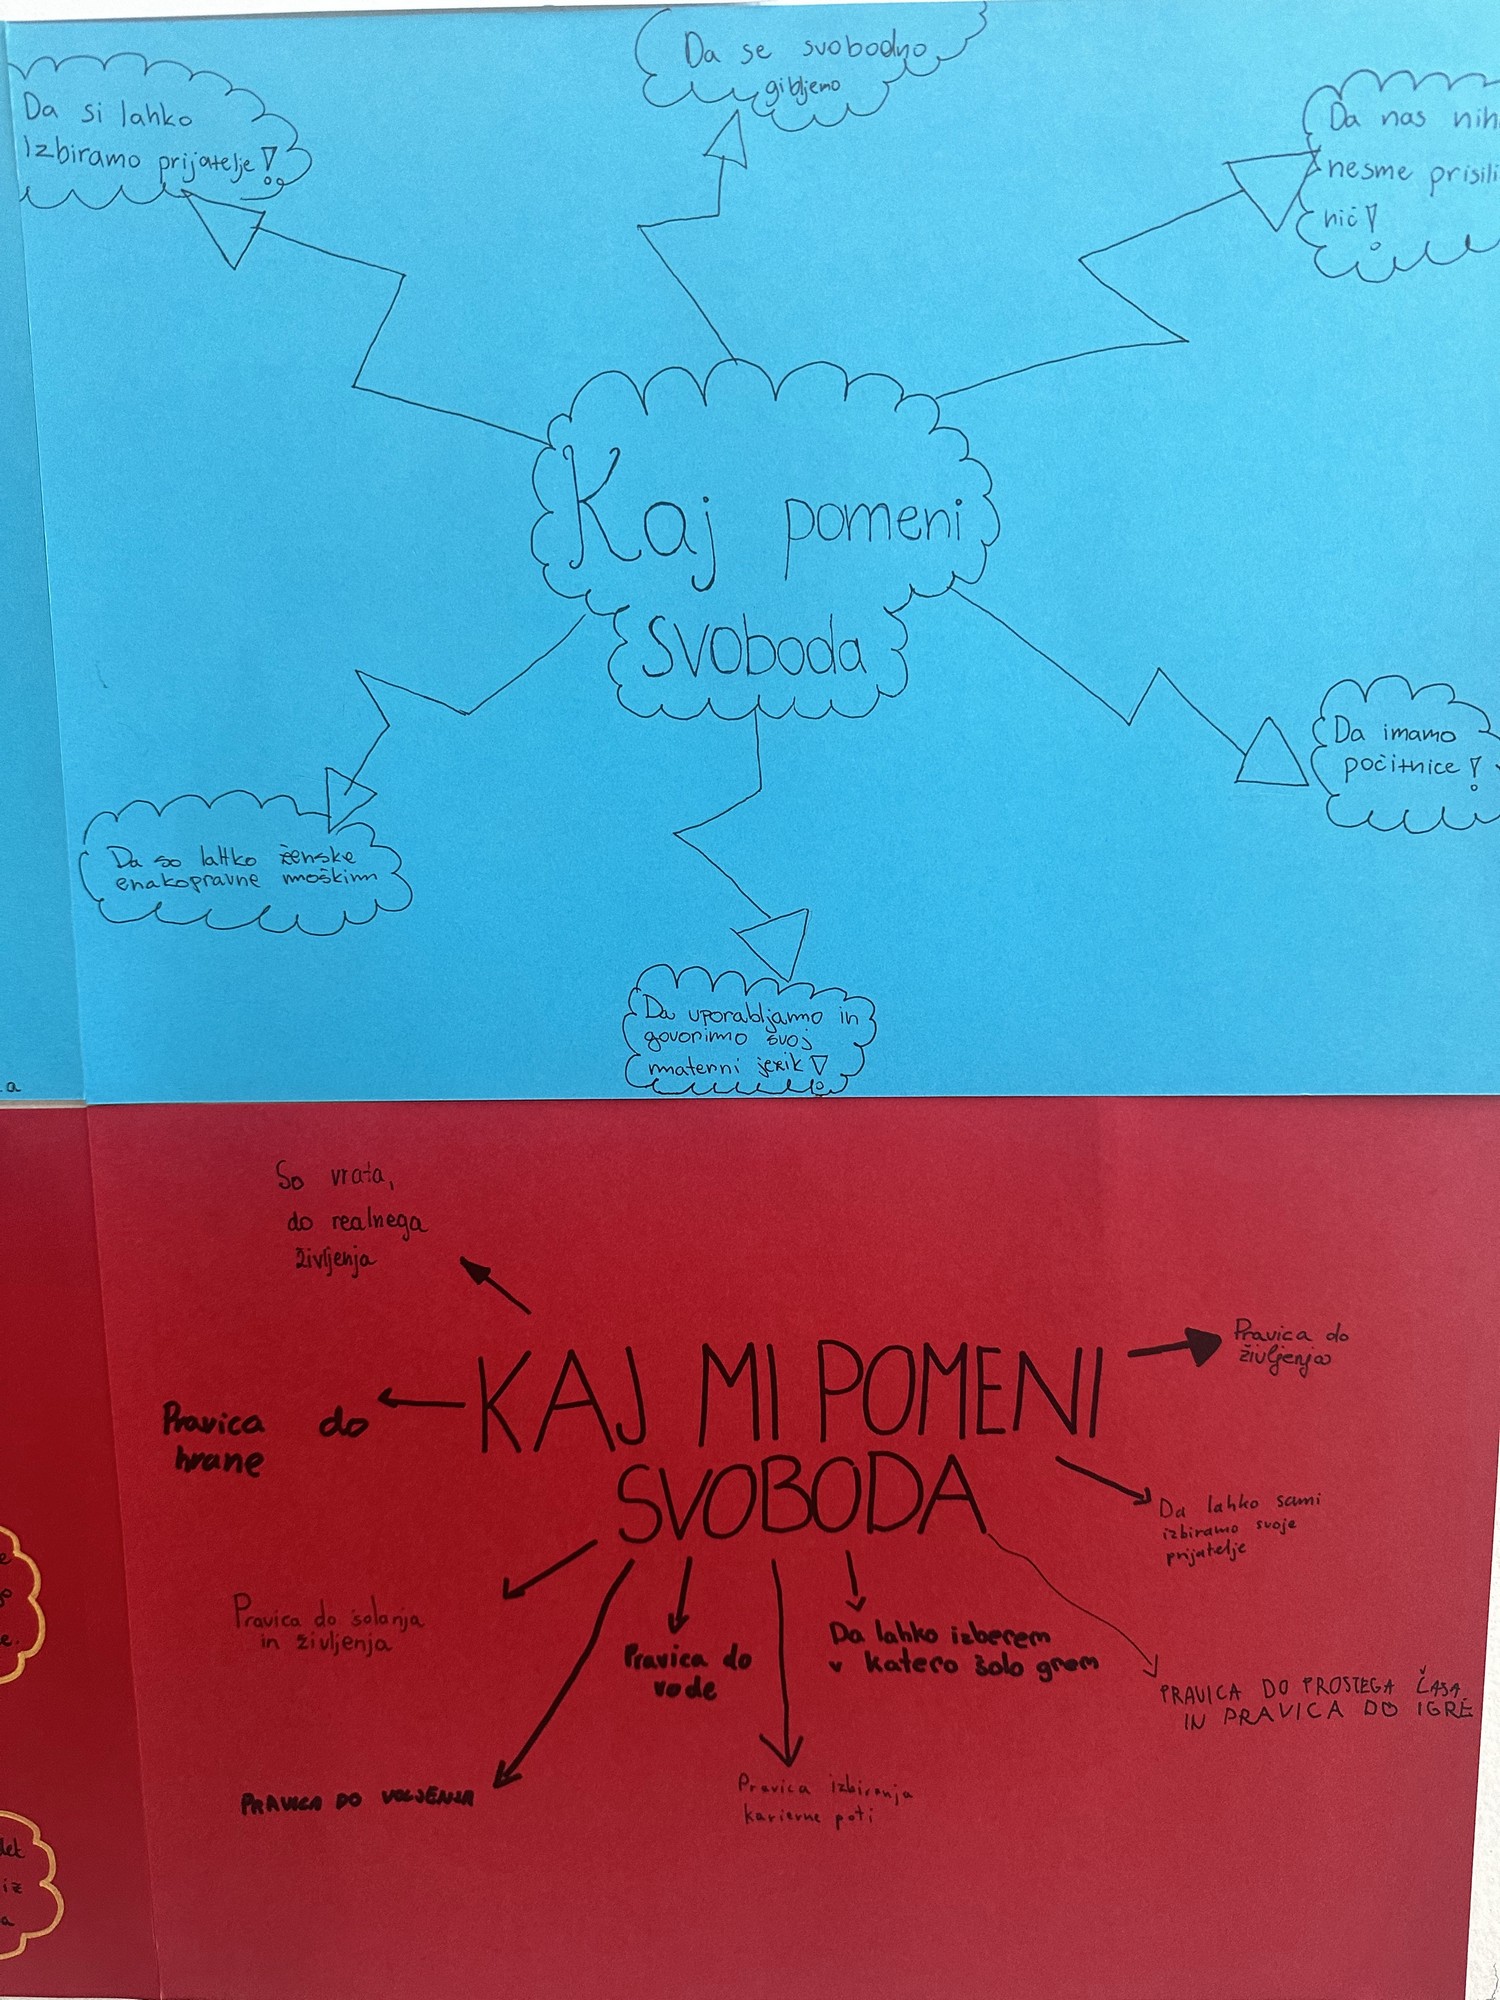 Da si lahko
Izbiramo prijatelje!
Da se svobodno
gibljemo
Da nas nih
nesme prisili
nič!
Kaj pomeni
svoboda
Da imamo
počitnice!
Da so lahko ženske
enakopravne moškim
Da uporabljamo in
govorimo svoj
materni jezik!
a
So vrata,
do realnega
življenja
KAJ MI POMENI
SVOBODA
Pravica do
življenja
Pravica do
hrane
Da lahko sami
izbiramo svoje
prijatelje
Pravica do šolanja
in življenja
Pravica do
vode
Da lahko izberem
v katero šolo grem
PRAVICA DO PROSTEGA ČASA
IN PRAVICA DO IGRE
PRAVICA DO
Pravica izbiranja
karierne poti
e
e.
det
iz
a